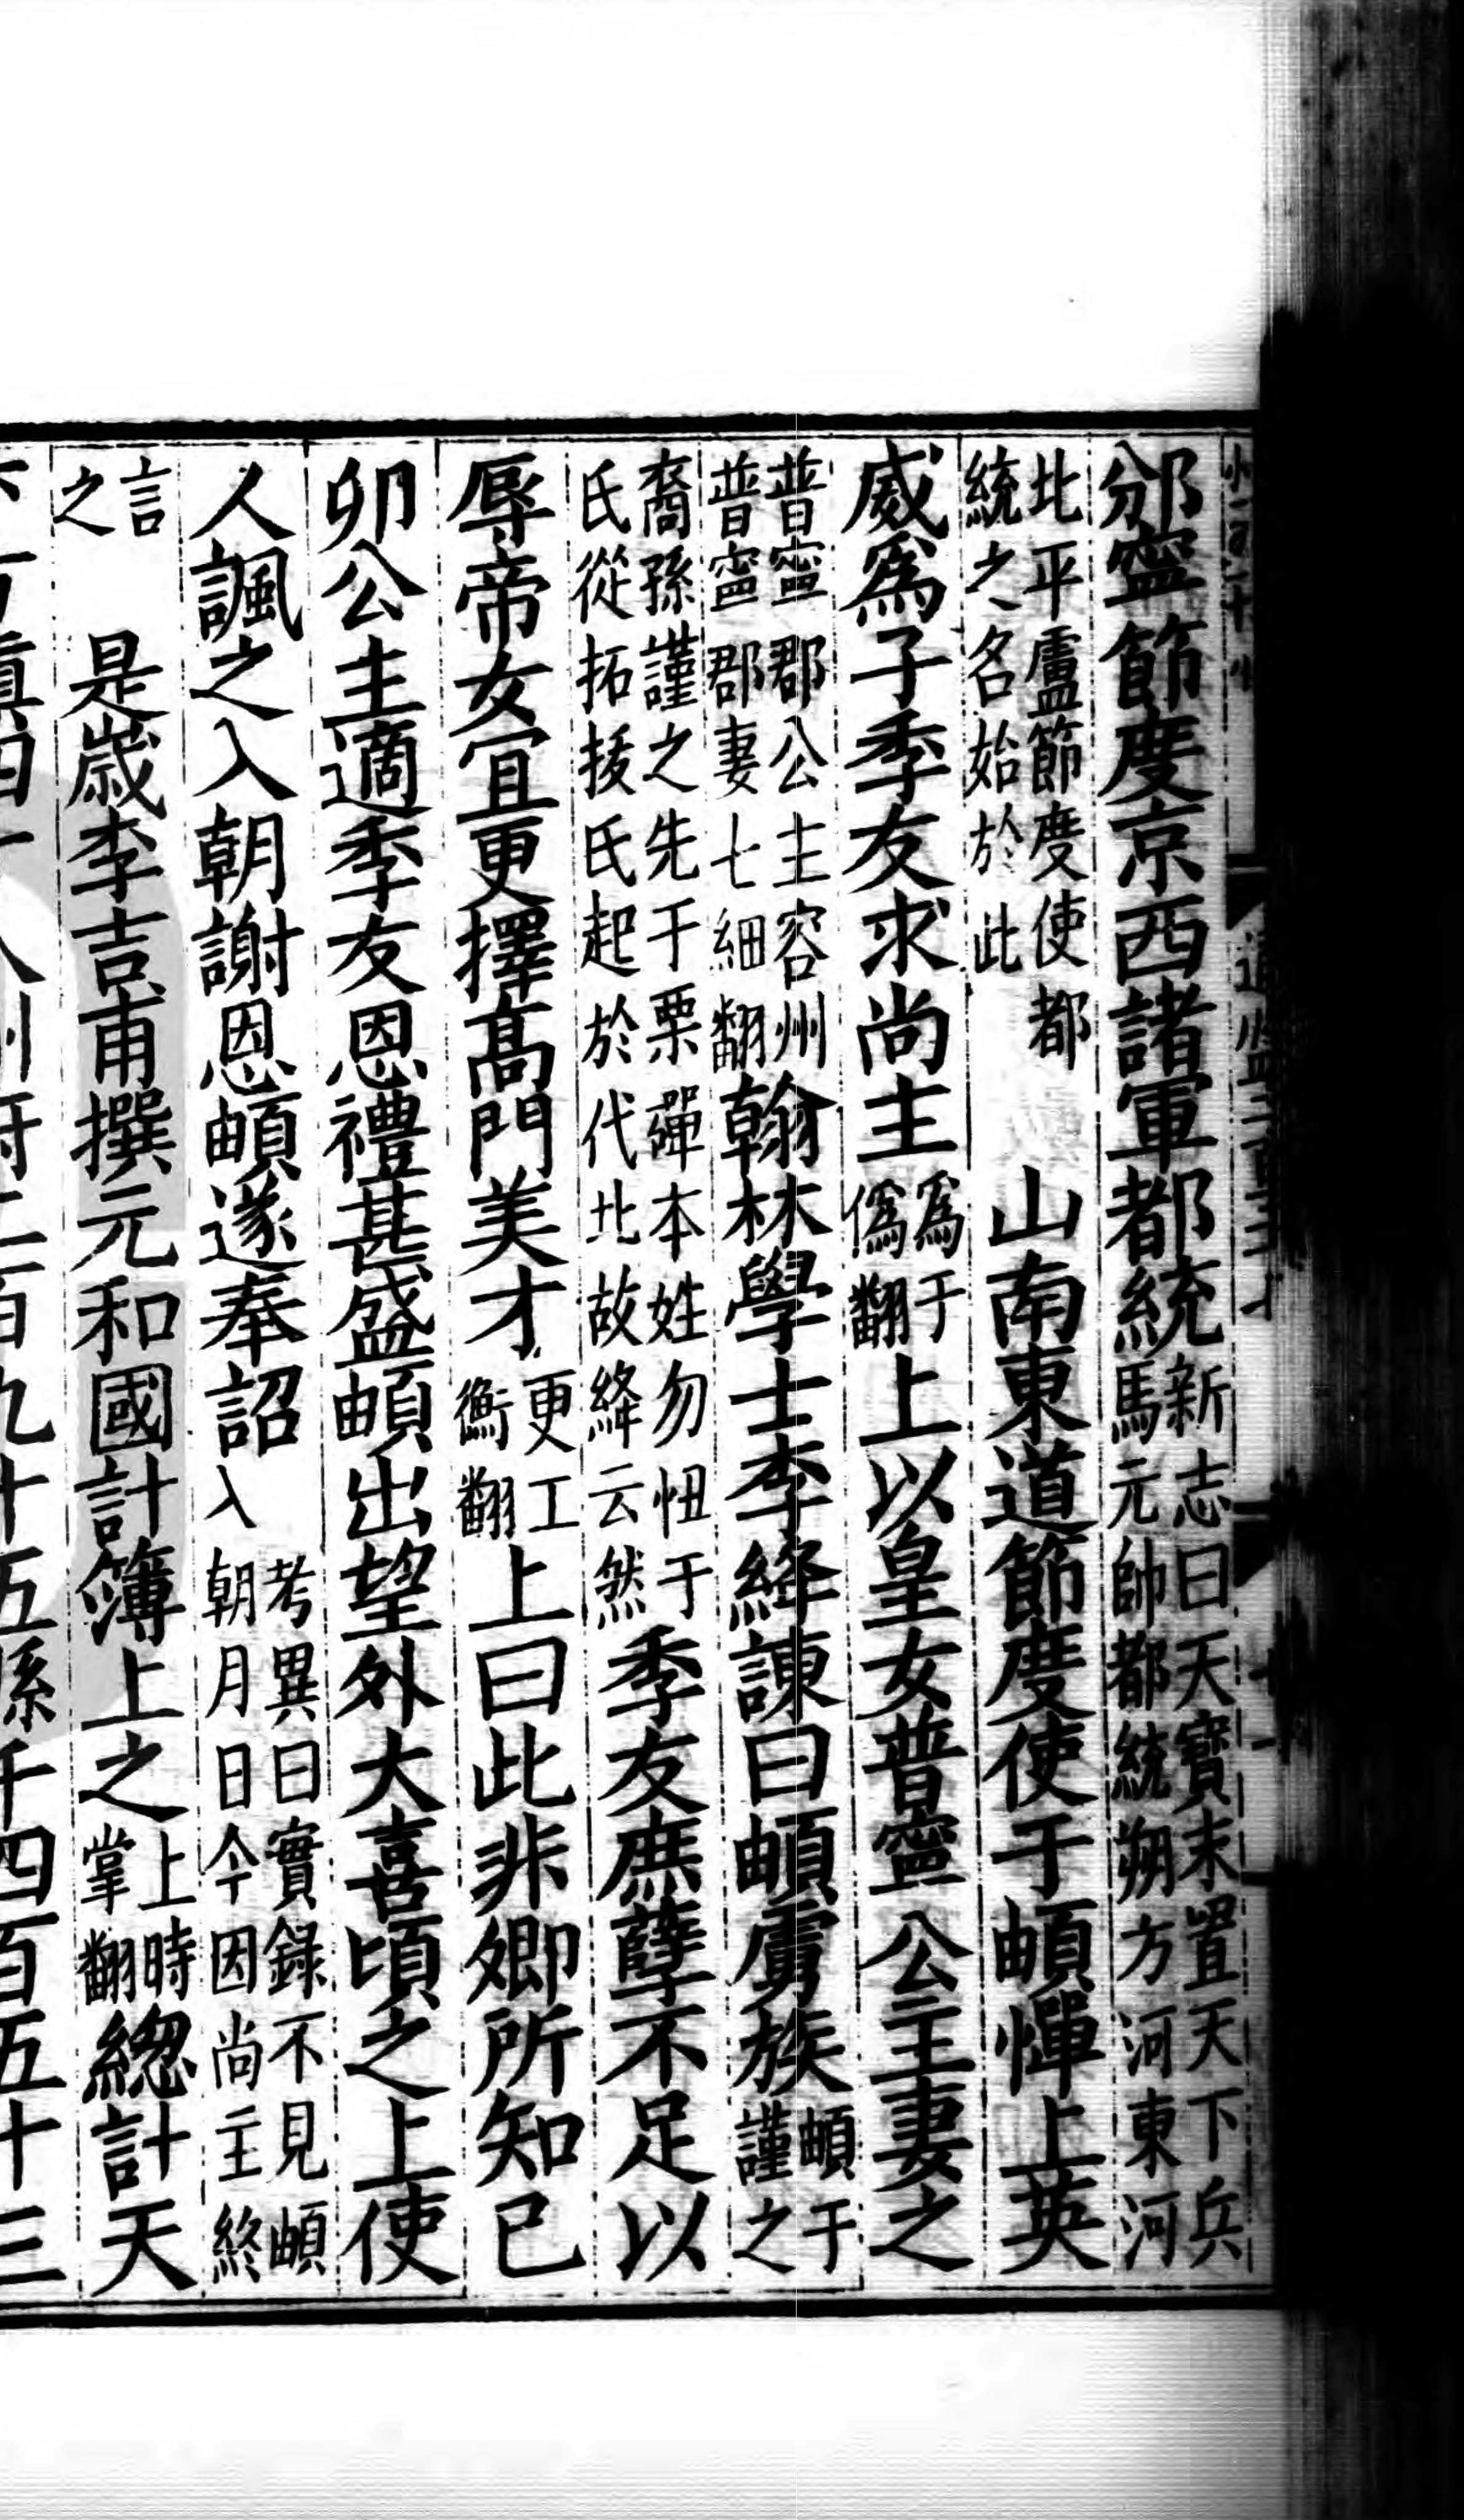 邠寧節度京西諸軍都統新志曰天寶末置天下兵馬元帥都統朔方河東河
北平盧節度使都統之名始於此 山南東道節度使于頔憚上英
威爲子季友求尚主爲于僞翻上以皇女普寧公主妻之
普寧郡公主容州普寧郡妻七細翻翰林學士李絳諫曰頔虜族頔于謹之
裔孫謹之先于栗磾本姓勿忸于氏從拓拔氏起於代北故絳云然季友庶孽不足以
辱帝女宜更擇高門美才更工衡翻上曰此非卿所知己
卯公主適季友恩禮甚盛頔出望外大喜頃之上使
人諷之入朝謝恩頔遂奉詔入考異曰實錄不見頔朝月日今因尚主終
言之 是歲李吉甫撰元和國計簿上之上時掌翻總計天
四十八州府二百九十五縣千四百五十三